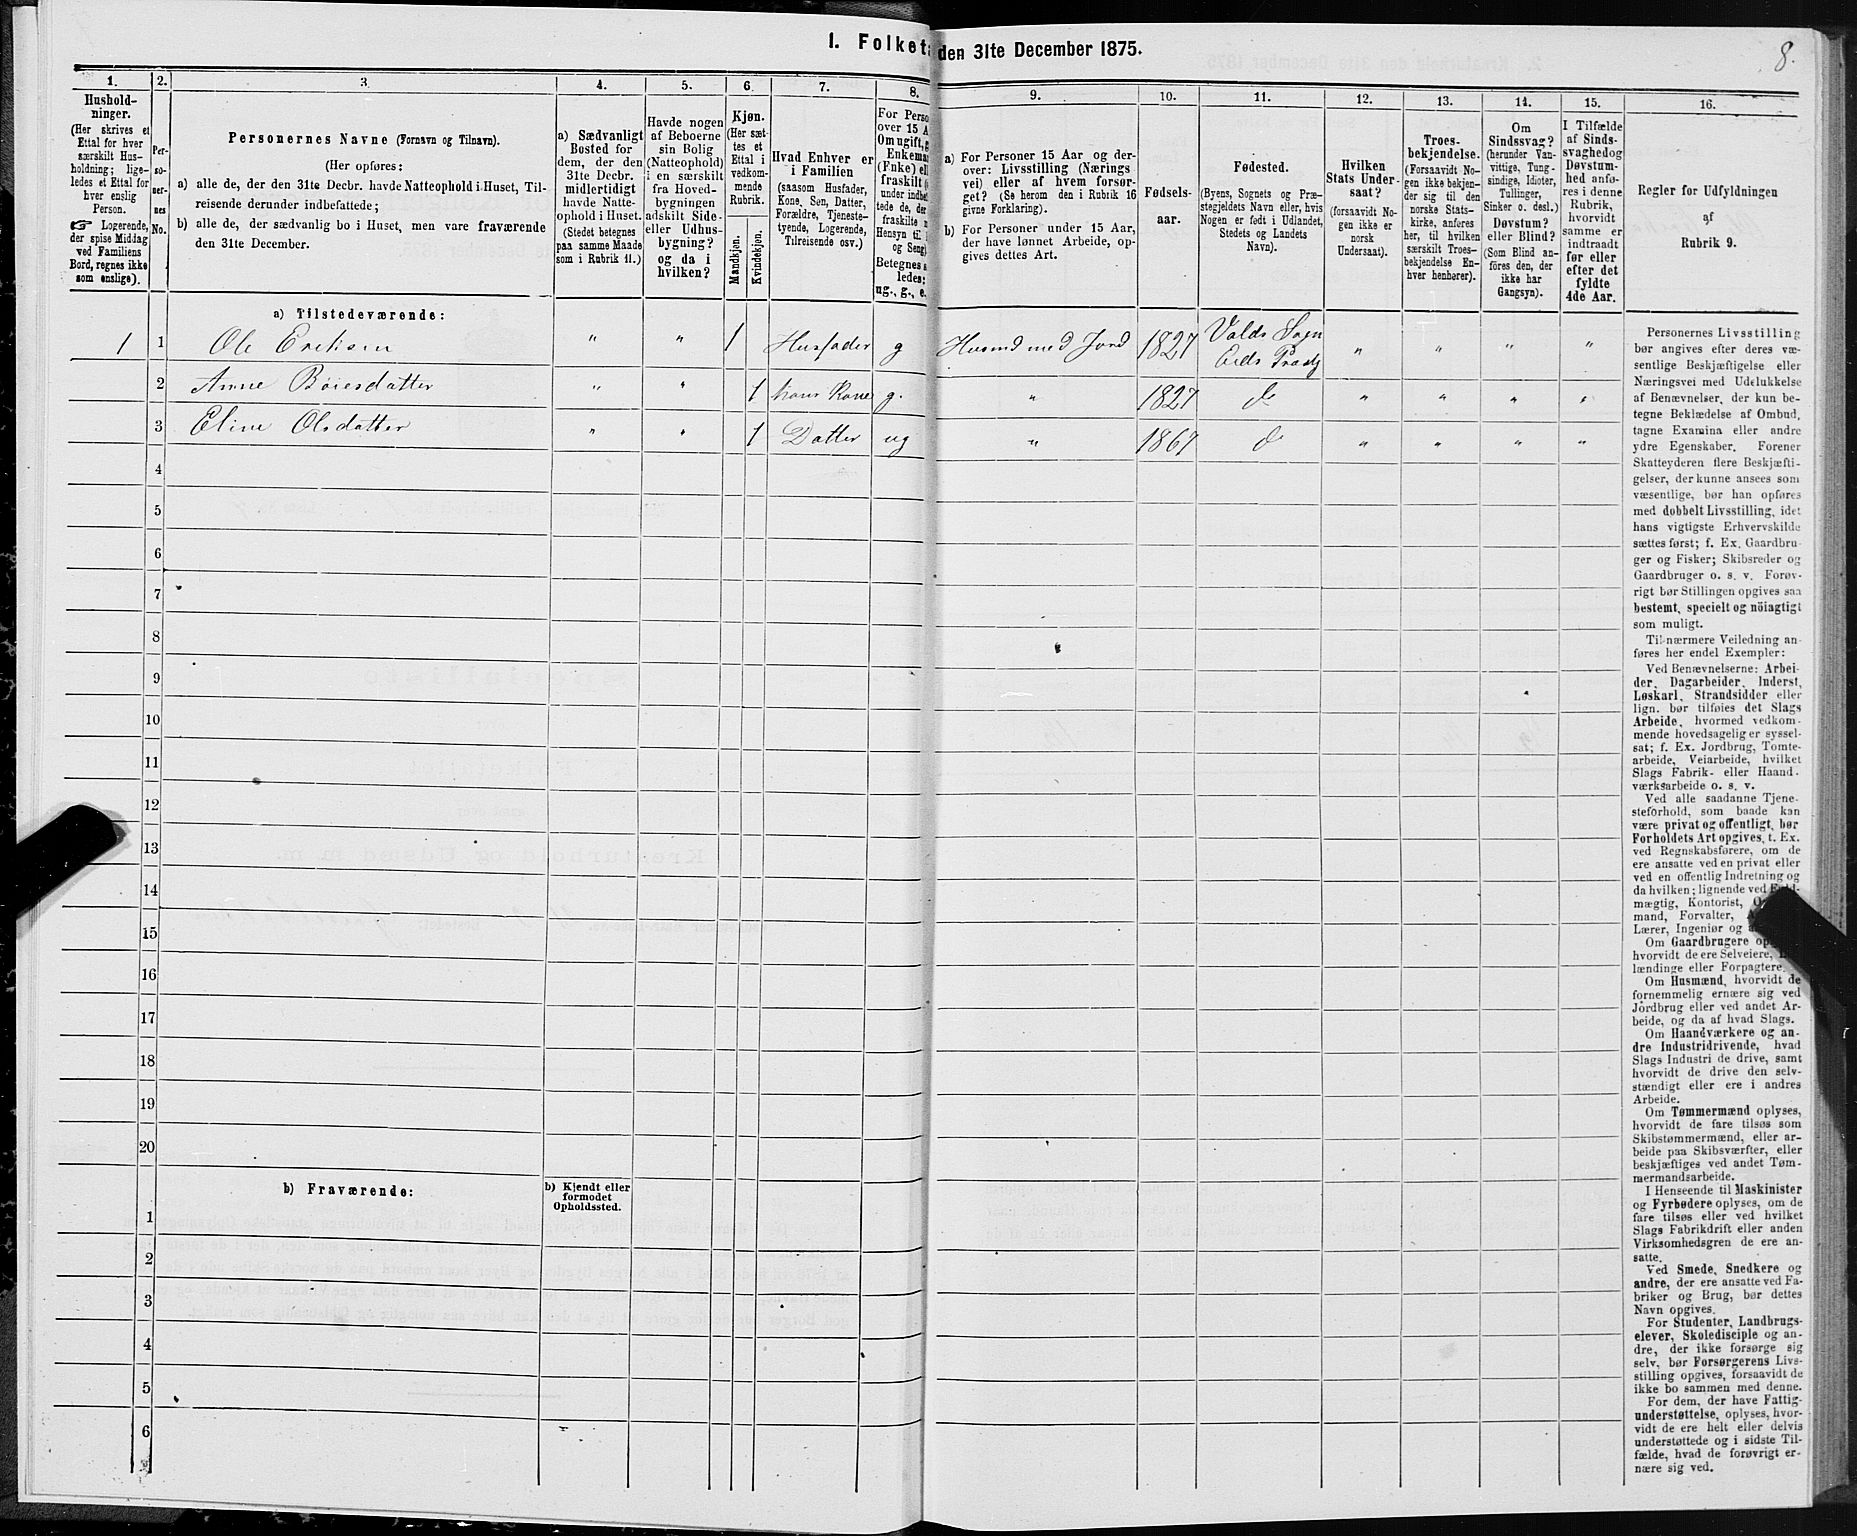 I. Folket
den 31te December 1875.
8.
1.
2.
3.
4.
5.
6.
7.
8.
9.
10.
11.
12.
13.
14.
15.
16.
Hushold-
ninger.
(Her skrives et
Ettal for hver
særskilt Hus-
holdning; lige-
ledes et Ettal for
hver enslig
Person.
☞ Logerende,
der spise Middag
ved Familiens
Bord, regnes ikke
som enslige).
Per-
so-
ner-
nes
No.
Personernes Navne (Fornavn og Tilnavn).
(Her opføres:
a) alle de, der den 31te Decbr. havde Natteophold i Huset, Til-
reisende derunder indbefattede;
b) alle de, der sædvanlig bo i Huset, men vare fraværende
den 31te December.
a) Sædvanligt
Bosted for
dem, der den
31te Decbr.
midlertidigt
havde Natte-
ophold i Huset.
(Stedet betegnes
paa samme Maade
som i Rubrik 11.)
Havde nogen
af Beboerne
sin Bolig
(Natteophold)
i en særskilt
fra Hoved-
bygningen
adskilt Side-
eller Udhus-
bygning?
og da i
hvilken?
Kjøn.
(Her sæt-
tes et
Ettal i
vedkom-
mende
Rubrik.
Mandkjøn.
Kvindekjøn.
Hvad Enhver er
i Familien
(saasom Husfader,
Kone, Søn, Datter,
Forældre, Tjeneste-
tyende, Logerende,
Tilreisende osv.)
For Perso
over 15 A
Om ugift, g
Enkema
(Enke) ell
fraskilt
under indbe
tede de, der
fraskilte
Hensyn til
og Seng
Betegnes s
ledes:
ug., g., e.
a) For Personer 15 Aar og der-
over: Livsstilling (Nærings
vei) eller af hvem forsør-
get? (Se herom den i Rubrik 16
givne Forklaring).
b) For Personer under 15 Aar,
der have lønnet Arbeide, op-
gives dettes Art.
Fødsels-
aar.
Fødested.
(Byens, Sognets og Præ-
stegjeldets Navn eller, hvis
Nogen er født i Udlandet,
Stedets og Landets
Navn).
Hvilken
Stats Under-
saat?
(forsaavidt No-
gen ikke er
norsk
Undersaat).
Troes-
bekjendelse.
(Forsaavidt No-
gen ikke bekjen-
der sig til den
norske Stats-
kirke, anføres
her, til hvilken
særskilt Troes-
bekjendelse En-
hver henhører).
Om
Sindssvag?
(herunder Van-
vittige, Tung-
sindige, Idioter,
Tullinger,
Sinker o. desl.)
Døvstum?
eller Blind?
(Som Blind an-
føres den, der
ikke har
Gangsyn).
I Tilfælde
af Sinds-
svaghed og
Døvstum-
hed anfø-
res i denne
Rubrik,
hvorvidt
samme er
indtraadt
før eller
efter det
fyldte
4de Aar.
Regler for Udfyldningen
af
Rubrik 9.
a) Tilstedeværende:
1 1 Ole Eriksen " " 1 Husfader g Husmd med Jord 1827 Volds Sogn " " " "
Eids Præstg
2 Anne Böiesdatter " " 1 hans Kone g. " 1827 do " " " "
3 Eline Olsdatter " " 1 Datter ug " 1867 do " " " "
4
5
6
7
8
9
10
11
12
13
14
15
16
17
18
19
20
b) Fraværende:
b) Kjendt eller
formodet
Opholdssted.
1
2
3
4
5
6
Personernes Livsstilling
bør angives efter deres væ-
sentlige Beskjæftigelse eller
Næringsvei med Udelukkelse
af Benævnelser, der kun be-
tegne Beklædelse af Ombud,
tagne Examina eller andre
ydre Egenskaber. Forener
Skatteyderen flere Beskjæfti-
gelser, der kunne ansees som
væsentlige, bør han opføres
med dobbelt Livsstilling, idet
hans vigtigste Erhvervskilde
sættes først; f. Ex. Gaardbru-
ger og Fisker; Skibsreder og
Gaardbruger o. s. v. Forøv-
rigt bør Stillingen opgives saa
bestemt, specielt og nöiagtigt
som muligt.
Til nærmere Veiledning an-
føres her endel Exempler:
Ved Benævnelserne: Arbei-
der, Dagarbeider, Inderst,
Løskarl, Strandsidder eller
lign. bør tilføies det Slags
Arbeide, hvormed vedkom-
mende hovedsagelig er syssel-
sat; f. Ex. Jordbrug, Tomte-
arbeide, Veiarbeide, hvilket
Slags Fabrik- eller Haand-
værksarbeide o. s. v.
Ved alle saadanne Tjene-
steforhold, som baade kan
være privat og offentligt, bør
Forholdets Art opgives, t. Ex.
ved Regnskabsførere, om de
ere ansatte ved en privat eller
ved en offentlig Indretning og
da hvilken; lignende ved
mægtig, Kontorist,
mand, Forvalter,
Lærer, Ingeniør og
Om Gaardbrugere
hvorvidt de ere Selveiere,
lændinge eller Forpagtere.
Om Husmænd, hvorvidt de
fornemmelig ernære sig ved
Jordbrug eller ved andet Ar-
beide, og da af hvad Slags.
Om Haandværkere og an-
dre Industridrivende, hvad
Slags Industri de drive, samt
hvorvidt de drive den selv-
stændigt eller ere i andres
Arbeide.
Om Tømmermænd oplyses,
hvorvidt de fare tilsøs som
Skibstømmermænd, eller ar-
beide paa Skibsværfter, eller
beskjæftiges ved andet Tøm-
mermandsarbeide.
I Henseende til Maskinister
og Fyrbødere oplyses, om de
fare tilsøs eller ved hvilket
Slags Fabrikdrift eller anden
Virksomhedsgren de ere an-
satte.
Ved Smede, Snedkere og
andre, der ere ansatte ved Fa-
briker og Brug, bør dettes
Navn opgives.
For Studenter, Landbrugs-
elever, Skoledisciple og an-
dre, der ikke forsørge sig
selv, bør Forsørgerens Livs-
stilling opgives, forsaavidt de
ikke bo sammen med denne.
For dem, der have Fattig-
understøttelse, oplyses, hvor-
vidt de ere helt eller delvis
understøttede og i sidste Til-
fælde, hvad de forøvrigt er-
nære sig ved.